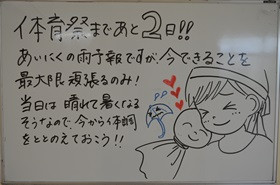 体育祭まであと2日!!
あいにくの雨予報ですが、今できることを
最大限頑張るのみ!
当日は晴れて暑くなる
そうなので、今から体調
をととのえておこう!!